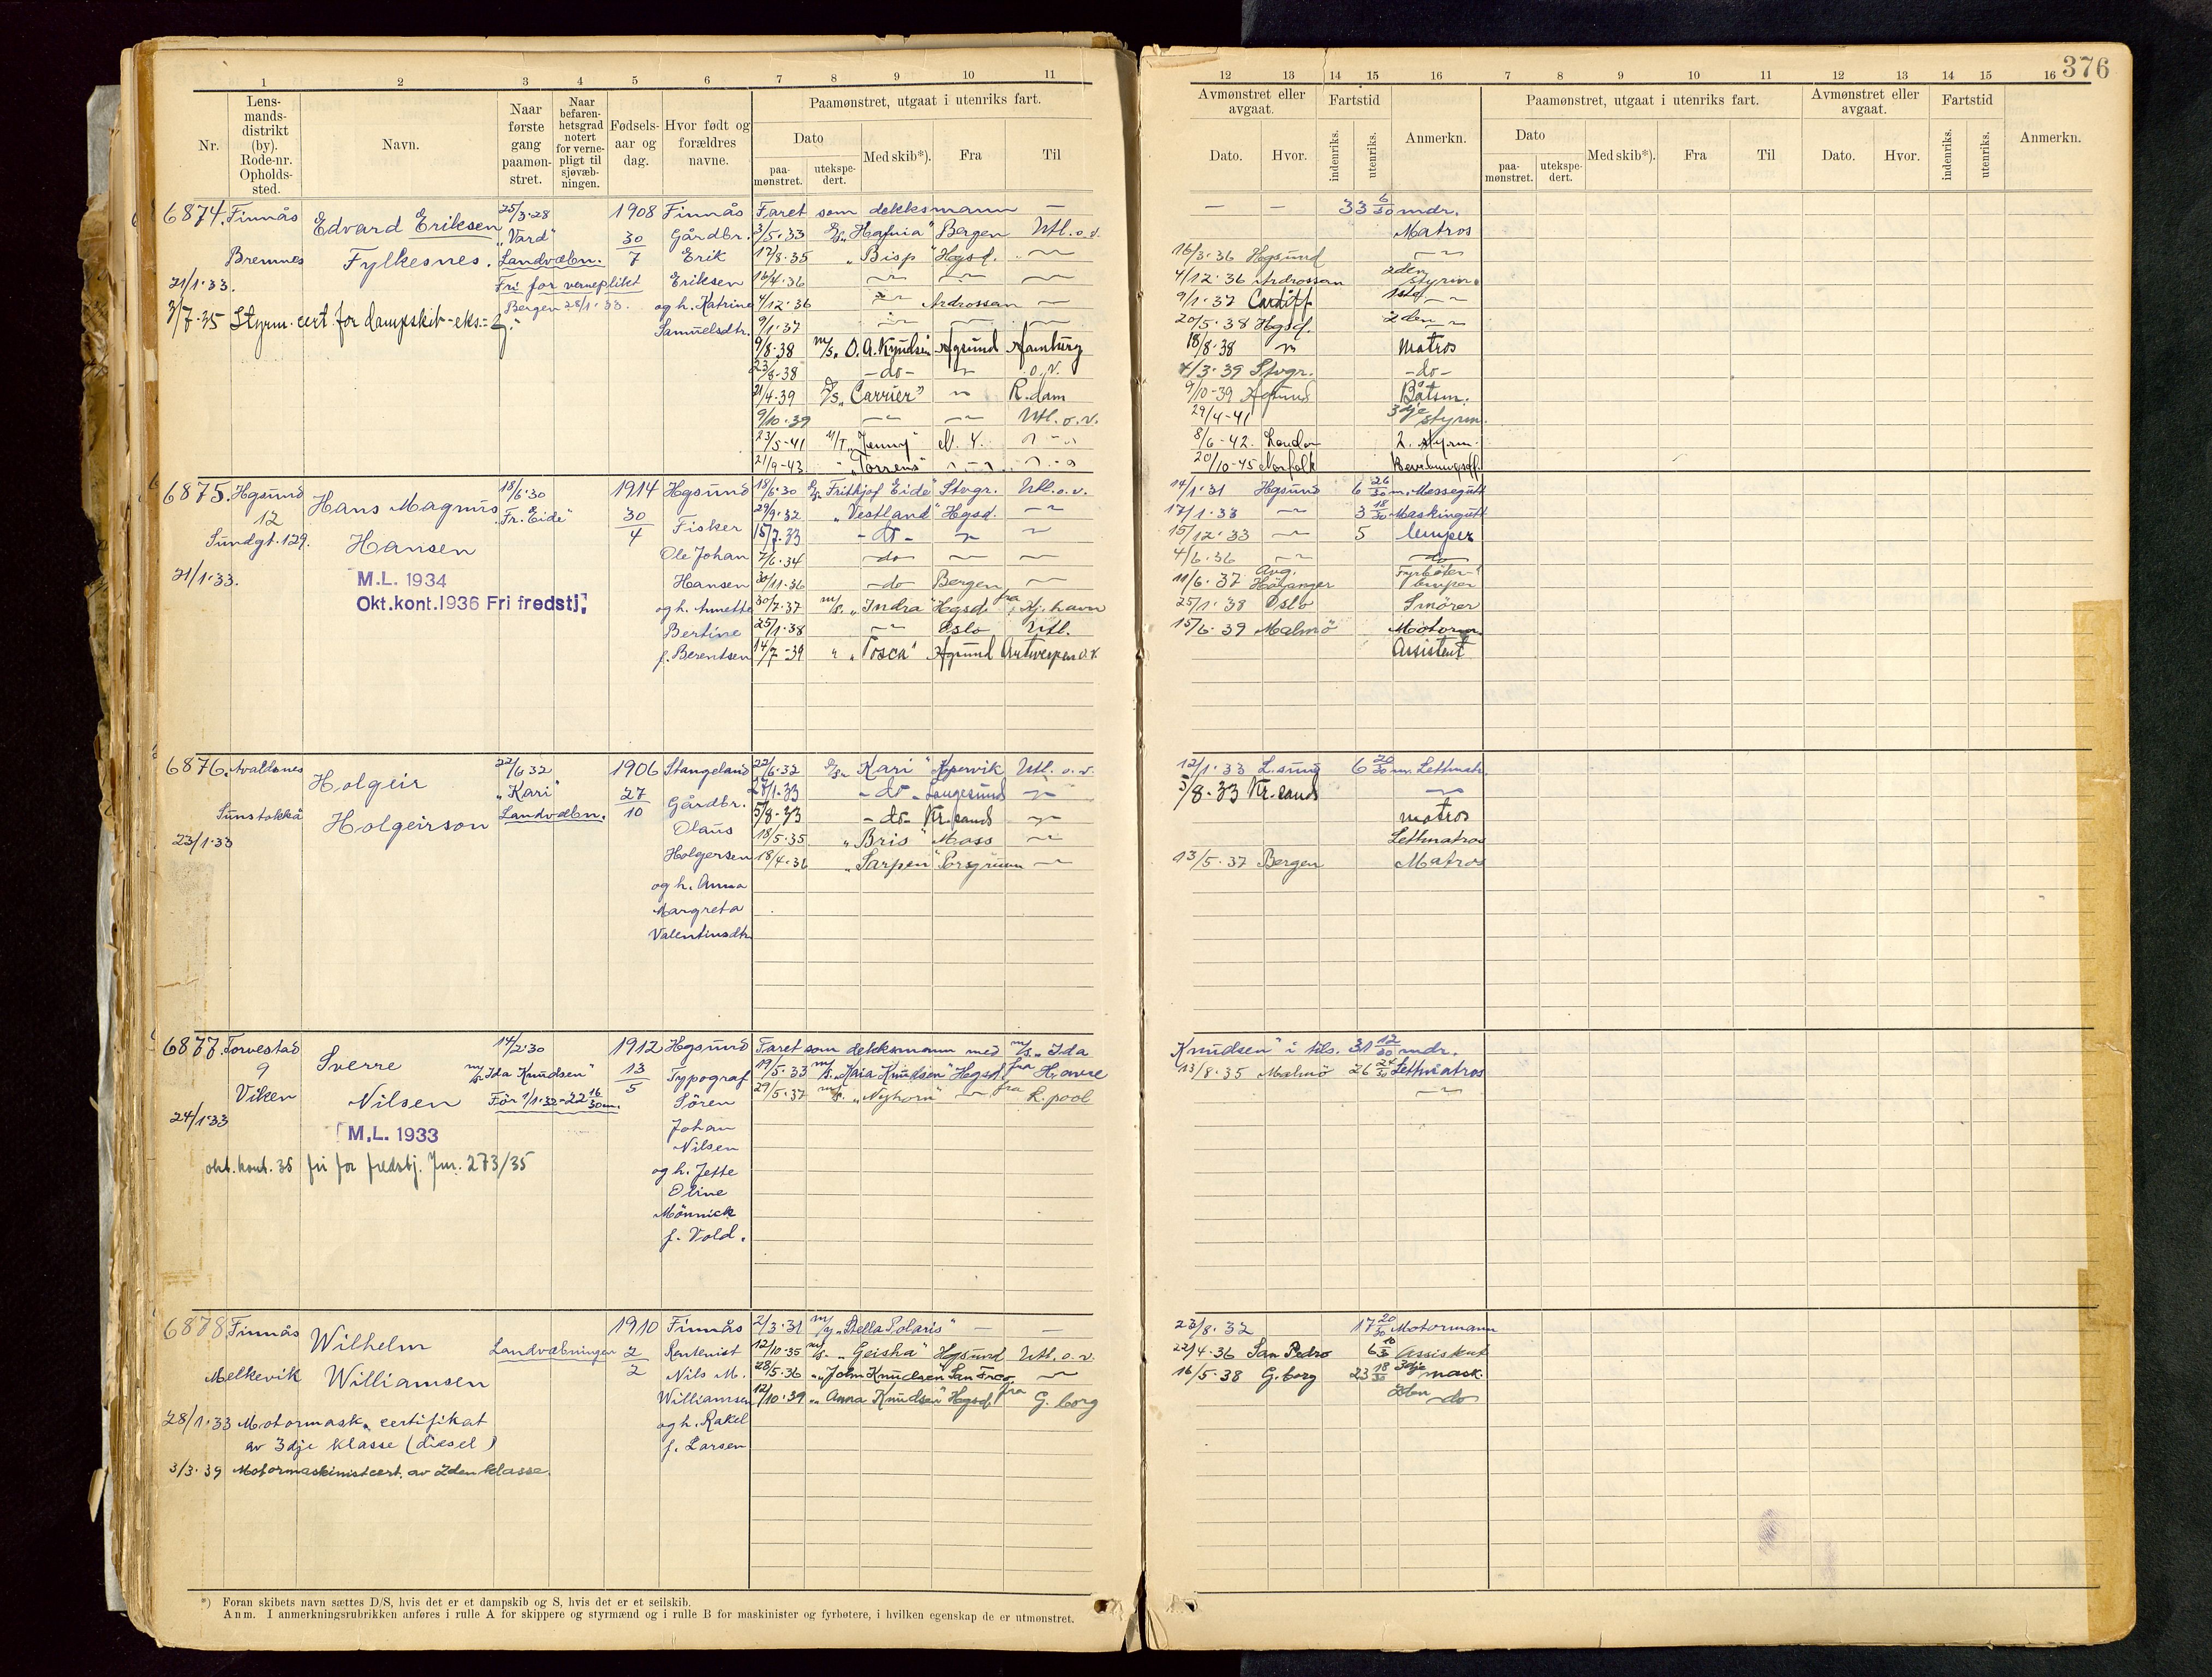 376
1 2 3 4 5 6 7 8 9 10 11 12 13 14 15 16 7 8 9 10 11 12 13 14 15 16
Nr.
Lens-
mands-
distrikt
(by).
Rode-nr.
Opholds-
sted.
Navn.
Naar
første
gang
paamøn-
stret.
Naar
befaren-
hetsgrad
notert
for verne-
pligt til
sjøvæb-
ningen.
Fødsels-
aar og
dag.
Hvor født og
forældres
navne.
Paamønstret, utgaat i utenriks fart.
Dato
paa-
mønstret.
utekspe-
dert.
Med skib*).
Fra
Til
Avmønstret eller
avgaat.
Dato.
Hvor.
Fartstid
indenriks.
utenriks.
Anmerkn.
Paamønstret, utgaat i utenriks fart.
Dato
paa-
mønstret.
utekspe-
dert.
Med skib*).
Fra
Til
Avmønstret eller
avgaat.
Dato.
Hvor.
Fartstid
indenriks.
utenriks.
Anmerkn.
6874. Finnås
Bremnes
21/1·33.
Edvard Eriksen
Fylkesnes.
25/3·28
"Vard"
Landvæbn.
Fri for verneplikt
Bergen 28/1·33.
3/7·35 Styrm. cert. for dampskib-eks.
1908
30/7
Finnås
Gårdbr.
Erik
Eriksen
og h. Katrine
Samuelsdtr.
Faret som dekksmann — — — 33 6/30 mdr.
3/5·33 D/S "Hafnia" Bergen Utl. o. v. Matros
17/8·35 "Bisp" Hgsd. 16/3·36 Hgsund
16/4·36 4/12·36 Ardrossan 2den styrm.
4/12·36 Ardrossan 9/1·37 Cardiff 1ste
9/1·37 20/5·38 Hgsd. 2den
9/8·38 M/S. O. A. Knudsen Hgsund Hamburg 18/8·38 Matros
23/8-38 -do- o. v. 4/3·39 Stvgr. -do-
21/4·39 D/S. "Carrier" R.dam 9/10-39 Hgsund Båtsm.
9/10·39 Utl. o. v. 29/4-41 3dje styrm.
23/5-41 M/T "Jenny" N. Y. 8/6-42. London 2. styrm.
21/9-43 "Torrens" 20/10-45 Norfolk
6875. Hgsund
12
Sundgt. 129.
21/1·33.
Hans Magnus
Hansen
M.L. 1934
Okt.kont.1936 Fri fredstj.
18/6·30
"Fr. Eide"
1914
30/4
Hgsund
Fisker
Ole Johan
Hansen
og h. Annette
Bertine
f. Berentsen
18/6·30 D/S. "Frithjof Eide" Stvgr. Utl. o. v. 14/1·31 Hgsund 6 26/30 m. Messegutt
29/9·32 "Vestland" Hgsd. 17/1·33 3 18/30 Maskingutt
15/7·33 -do- 15/12·33 5 lemper
7/6·34 -do- 4/6·36 do
30/11·36 -do- Bergen 11/6·37 Avg. Höyanger Fyrböter lemper
30/7·37 M/S. "Indra" Hgsd. fra Kj. havn 25/1·38 Oslo Smörer
25/1·38 Oslo Utl. 15/6·39 Malmö Motorm.
14/7-39 "Tosca" Hgsund Antwerpen o. v. Assistent
6876. Avaldsnes
23/1·33
Holgeir
Holgeirson
22/6 32
"Kari"
Landvæbn.
1906
27/10
Stangeland
Gårdbr.
Olaus
Holgersen
og h. Anna
Margreta
Valentinsdtr.
22/6·32 D/S. "Kari" Kopervik Utl. o. v. 12/1·33 L.sund 6 20/30 m. Lettmatr.
-do- Langesund 5/8·33 Kr.sand
5/8-33 -do- Kr.sand matros
18/5·35 "Bris" Moss Lettmatros
18/4·36 "Sarpen" Porsgrunn 13/5·37 Bergen Matros
6877. Torvestad
9
Viken
24/1·33
Sverre
Nilsen
M.L. 1933
okt. kont. 35 fri for fredstj. Jnr. 273/35
14/2·30
M/S "Ida Knudsen"
Før 1/1·32=22 16/30 m.
1912
13/5
Hgsund
Typograf
Sören
Johan
Nilsen
og h. Jette
Oline
Mönnick
f. Vold.
Faret som dekksmann med M/S. "Ida Knudsen" i tils. 31 12/30 mdr.
19/5·33 M/S. "Kaia Knudsen" Hgsd. fra H;avre 13/8·35 Malmö 26 24/30 Lettmatros
29/5·37 M/S. "Nyhorn" fra L. pool
6878 Finnås
Melkevik
Wilhelm
Williamsen
Landvæbningen
28/1·33 Motormask. certifikat
av 3dje klasse (diesel)
3/3·39 Motormaskinistcert. av 2den klasse.
1910
2/2
Finnås
Rentenist
Nils M.
Williamsen
og h. Rakel
f. Larsen
2/3·31 M/Y "Stella Polaris" — — 23/8·32 17 20/30 Motormann
12/10·35 M/S. "Geisha" Hgsund Utl. o. v. 22/4·36 San Pedro 6 10/30 Assistent
28/5·36 "John Knudsen" San Frco 16/5·38 G. borg 23 18/30 3dje mask.
12/10·39 "Anna Knudsen" Hgsd. fra G. borg 2den do
*) Foran skibets navn sættes D/S, hvis det er et dampskib og S, hvis det er et seilskib.
Anm. I anmerkningsrubrikken anføres i rulle A for skippere og styrmænd og i rulle B for maskinister og fyrbøtere, i hvilken egenskap de er utmønstret.